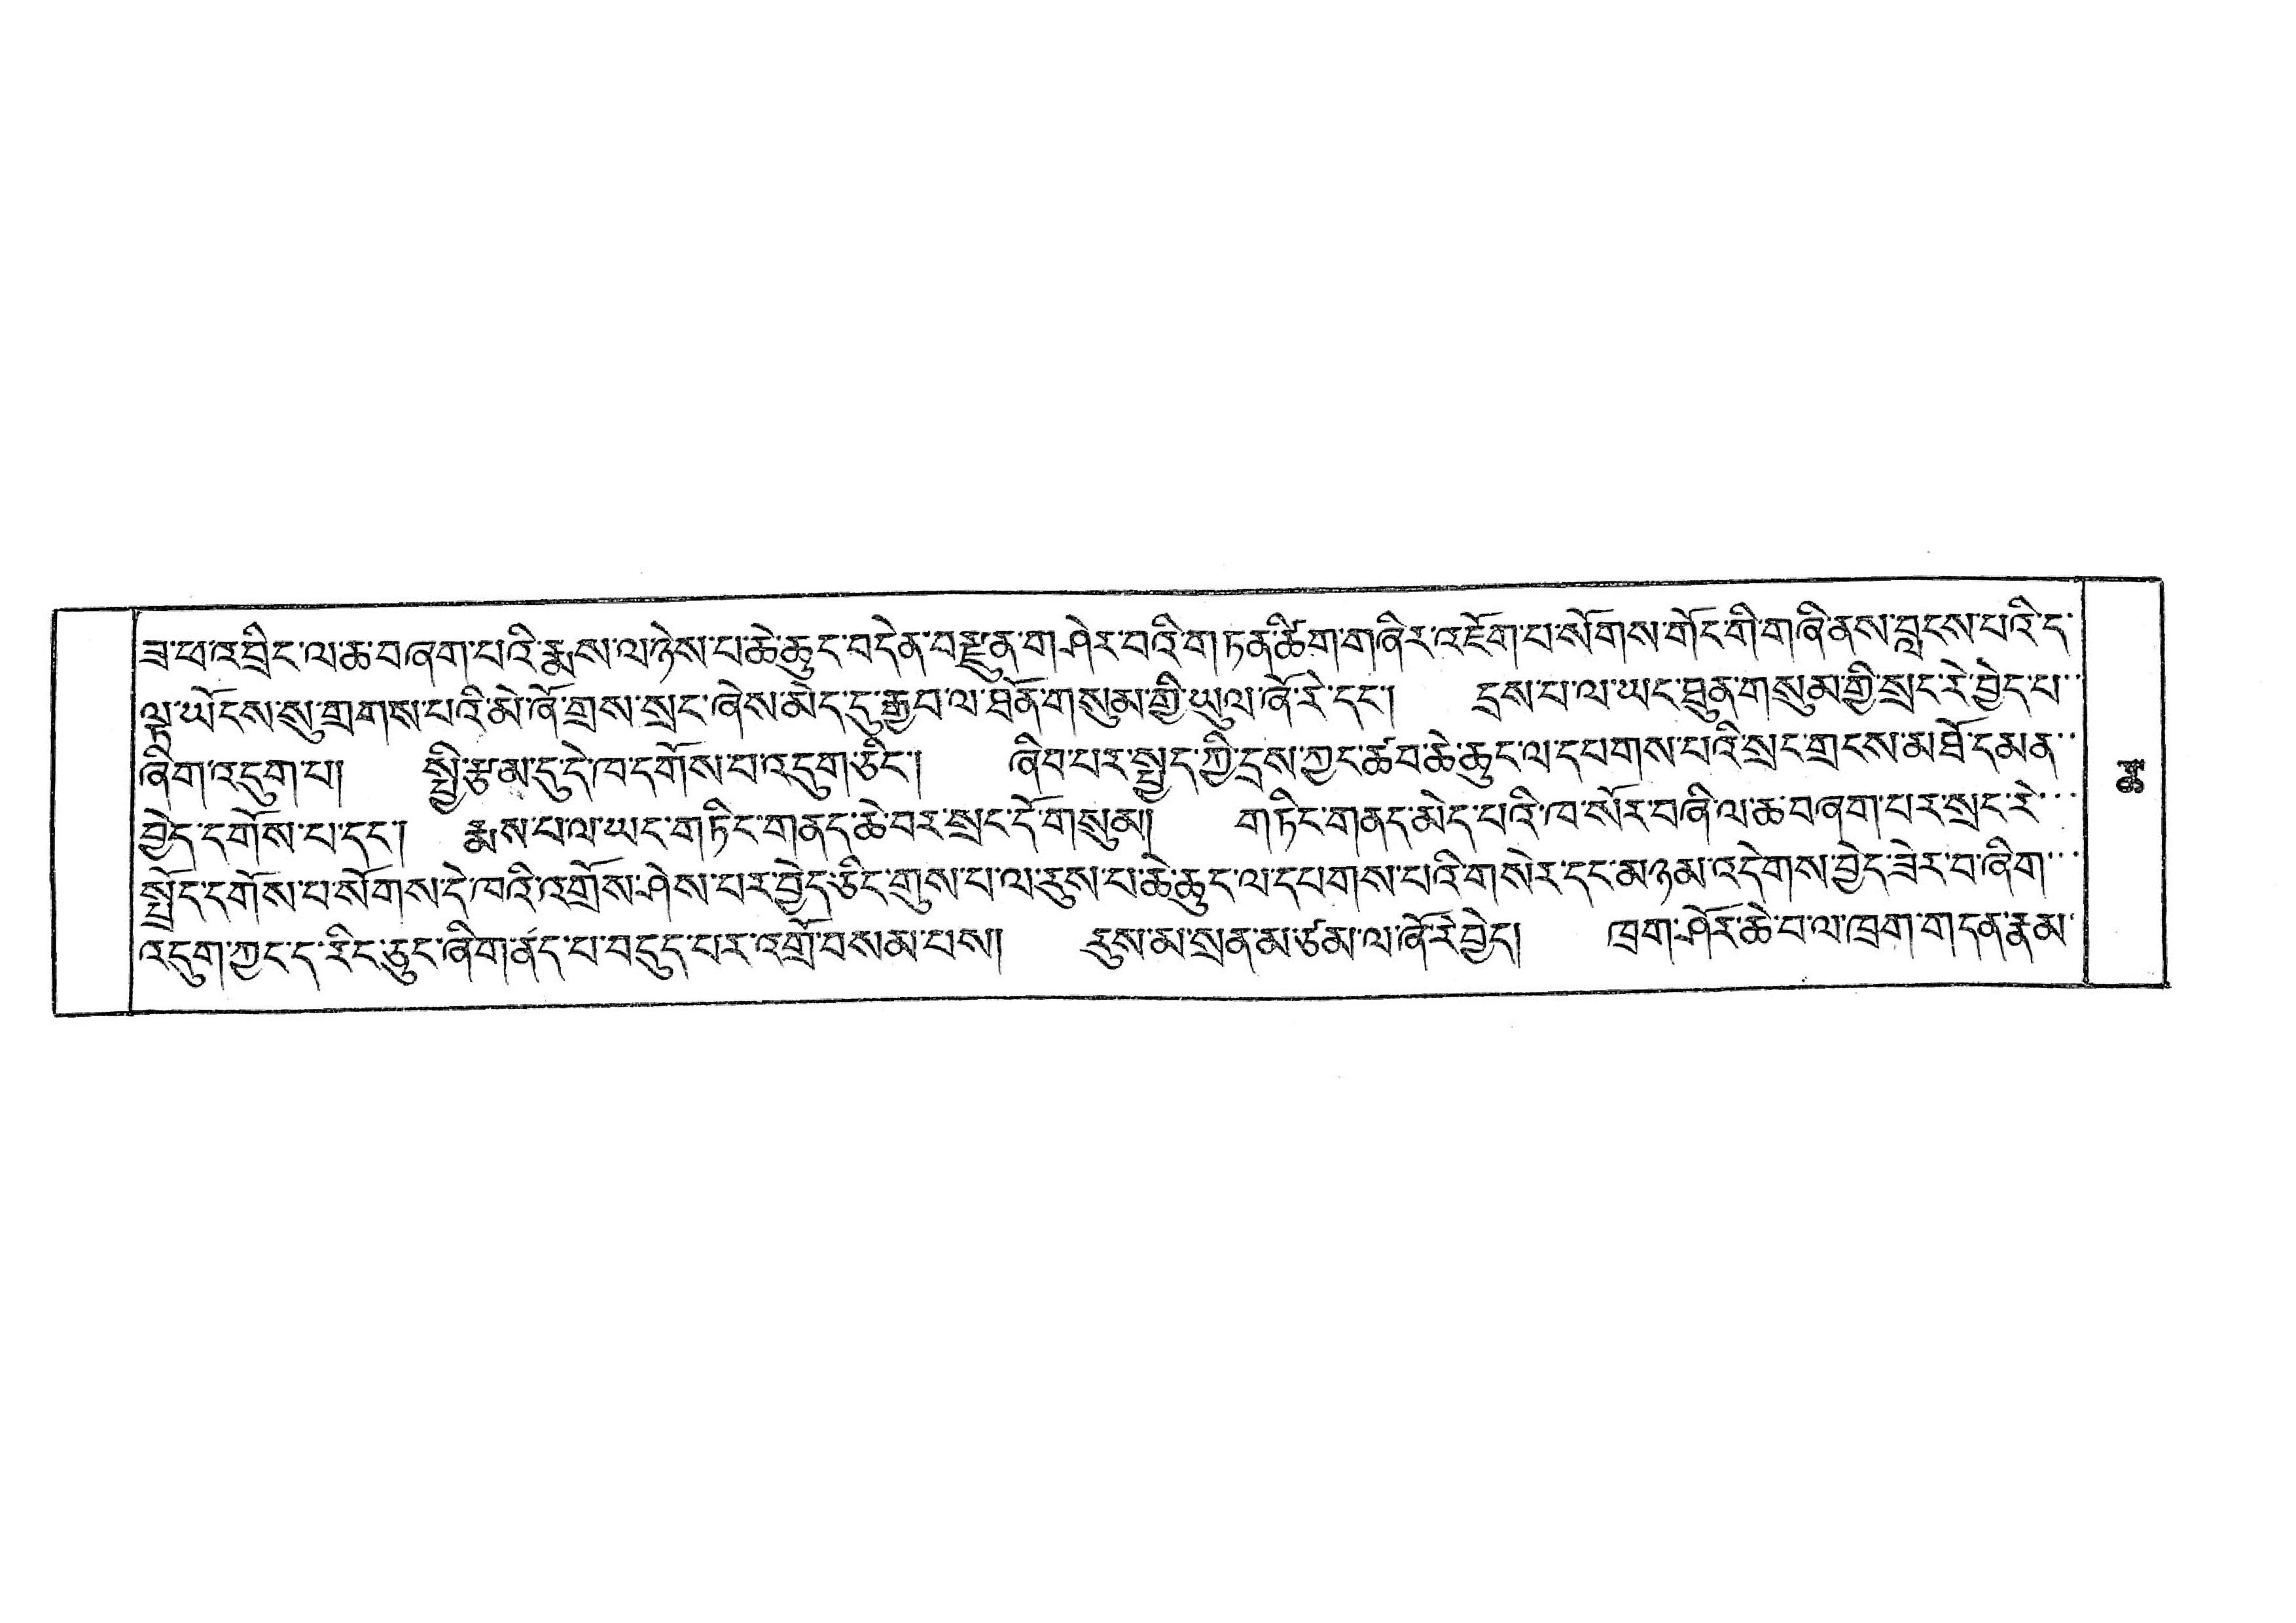 ཟ་ཕ་འབྲིང་ལ་ཆ་བཞག་པའི་རྨས་ལ་ཉེས་པ་ཆེ་ཆུང་བདེན་བརྫུན་ག་ཤེར་བའི་གཏན་ཚིག་གཞིར་འཇོག་པ་སོགས་གོང་གི་གཞི་ནས་བླངས་པའི་ད་
ལྟ་ཡོངས་སུ་གྲགས་པའི་མེ་ཞོ་གྲས་སྲང་ཞེས་མེད་དུ་རྒྱབ་ལ་ཐོན་གསུམ་གྱི་ཡུལ་ཞོ་རེ་དང་། དྲས་པ་ལ་ཡང་ཐུན་གསུམ་གྱི་སྲང་རེ་བྱེད་པ་
ཞིག་འདུག་པ། སྤྱི་རྩམ་དུ་དེ་ཁ་དགོས་བ་འདུག་ཅིང་། ཞིབ་པར་སྤྱད་ཀྱི་དྲས་ཀྱང་ཚབ་ཆེ་ཆུང་ལ་དཔགས་པའི་སྲང་གྲངས་མཐོ་དམན་
བྱེད་དགོས་པ་དང་། རྨས་པ་ལ་ཡང་གཏིང་གནད་ཆེ་བར་སྲང་དོ་གསུམ། གཏིང་གནད་མེད་པའི་ཁ་སོར་བཞི་ལ་ཆ་བཞག་པར་སྲང་རེ་
སྤྲོད་དགོས་པ་སོགས་དེ་ཁའི་འགྲོས་ཤེས་པར་བྱེད་ཅིང་གྲུས་པ་ལ་རུས་པ་ཆེ་ཆུང་ལ་དཔགས་པའི་གསེར་དང་མཉམ་འདེགས་བྱེད་ཟེར་བ་ཞིག་
འདུག་ཀྱང་ད་རིང་ཅུང་ཞིག་ནད་པ་བདུད་པར་འགྲོ་བསམ་པས། རུས་མ་སྲན་མ་ཙམ་ལ་ཞོ་རེ་བྱེད། ཁྲག་ཤོར་ཆེ་བ་ལ་ཁྲག་གདན་རྣམ་